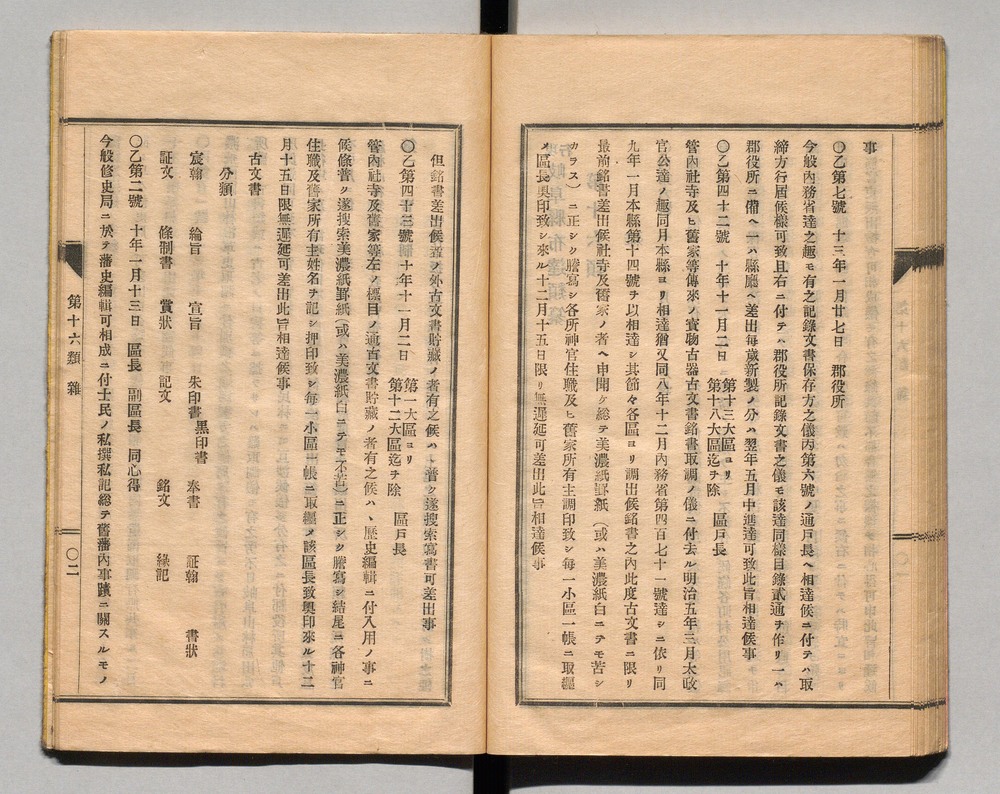 事
〇乙第七號　十三年一月廿七日　郡役所
今般內務省達之趣モ有之記錄文書保存方之儀丙第六號ノ通戸長ヘ相達候ニ付テハ取
締方行屆候樣可致且右ニ付テハ郡役所記錄文書之儀モ該達同樣目錄貳通ヲ作リ一ハ
郡役所ニ備ヘ一ハ縣廳ヘ差出每歲新製ノ分ハ翌年五月中進達可致此旨相達候事
〇乙第四十二號　十年十一月二日　第十三大區ヨリ第十八大區迄ヲ除　區戸長
管內社寺及ヒ舊家等傳來ノ寶物古器古文書銘書取調ノ儀ニ付去ル明治五年三月太政
官公達ノ趣同月本縣ヨリ相達猶又同八年十二月內務省第四百七十一號達シニ依リ同
九年一月本縣第十四號ヲ以相達シ其節々各區ヨリ調出候銘書之內此度古文書ニ限リ
最前銘書差出候社寺及舊家ノ者ヘ申聞ケ総テ美濃紙罫紙（或ハ美濃紙白ニテモ苦シ
カラス）ニ正シク謄寫シ各所神官住職及ヒ舊家所有主調印致シ每一小區一帳ニ取纒
メ區長奧印致シ來ル十二月十五日限リ無遲延可差出此旨相達候事
但銘書差出候者ノ外古文書貯藏ノ者有之候ハヽ普ク遂搜索寫書可差出事
〇乙第四十三號　十年十一月二日　第一大區ヨリ第十二大區迄ヲ除　區戸長
管內社寺及舊家等左ノ標目ノ通古文書貯藏ノ者有之候ハヽ歷史編輯ニ付入用ノ事ニ
候條普ク遂搜索美濃紙罫紙（或ハ美濃紙白ニテモ不苦）ニ正シク謄寫シ結尾ニ各神官
住職及舊家所有主姓名ヲ記シ押印致シ每一小區一帳ニ取纒メ該區長致奧印來ル十二
月十五日限無遲延可差出此旨相達候事
古文書
分類
宸翰　綸旨　宣旨　朱印書黑印書　奉書　証翰　書狀
証文　條制書　賞狀　記文　銘文　緣記
〇乙第二號　十年一月十三日　區長　副區長　同心得
今般修史局ニ於テ藩史編輯可相成ニ付士民ノ私撰私記総テ舊藩內事蹟ニ關スルモノ
第十六類　雜
〇二